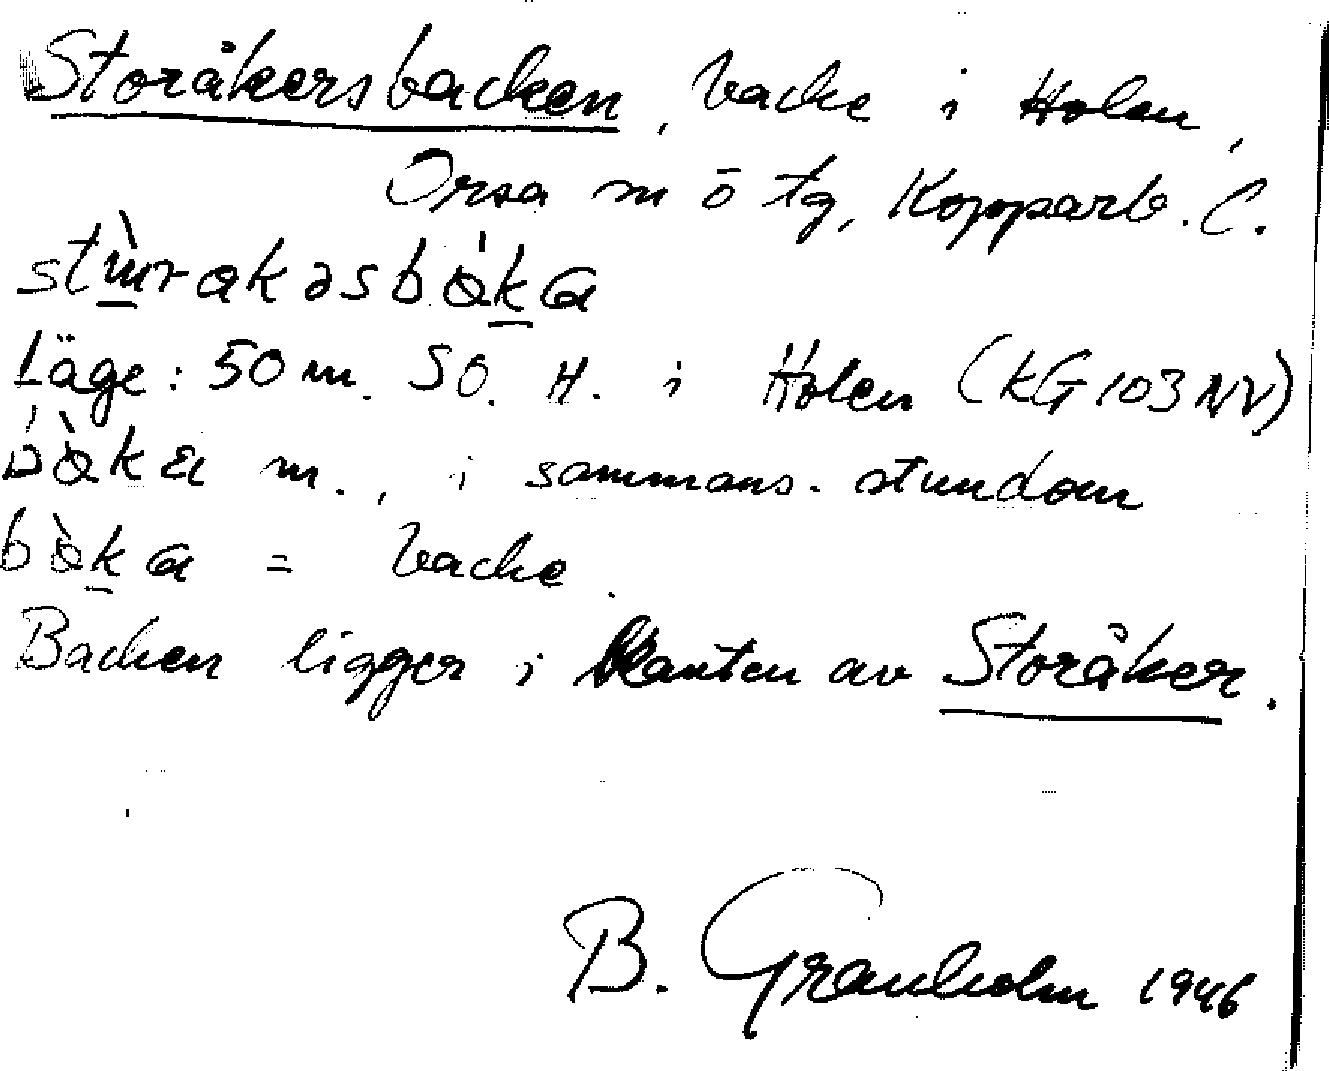 Storåkersbacken, backe i Holen,
Orsa sn ö tg, Kopparb. l.
Läge: 50 m. SO. H. i Holen (KG 103 NV)
m., i sammans. stundom
= backe.
Backen ligger i kanten av Storåker.
B. Granholm 1946